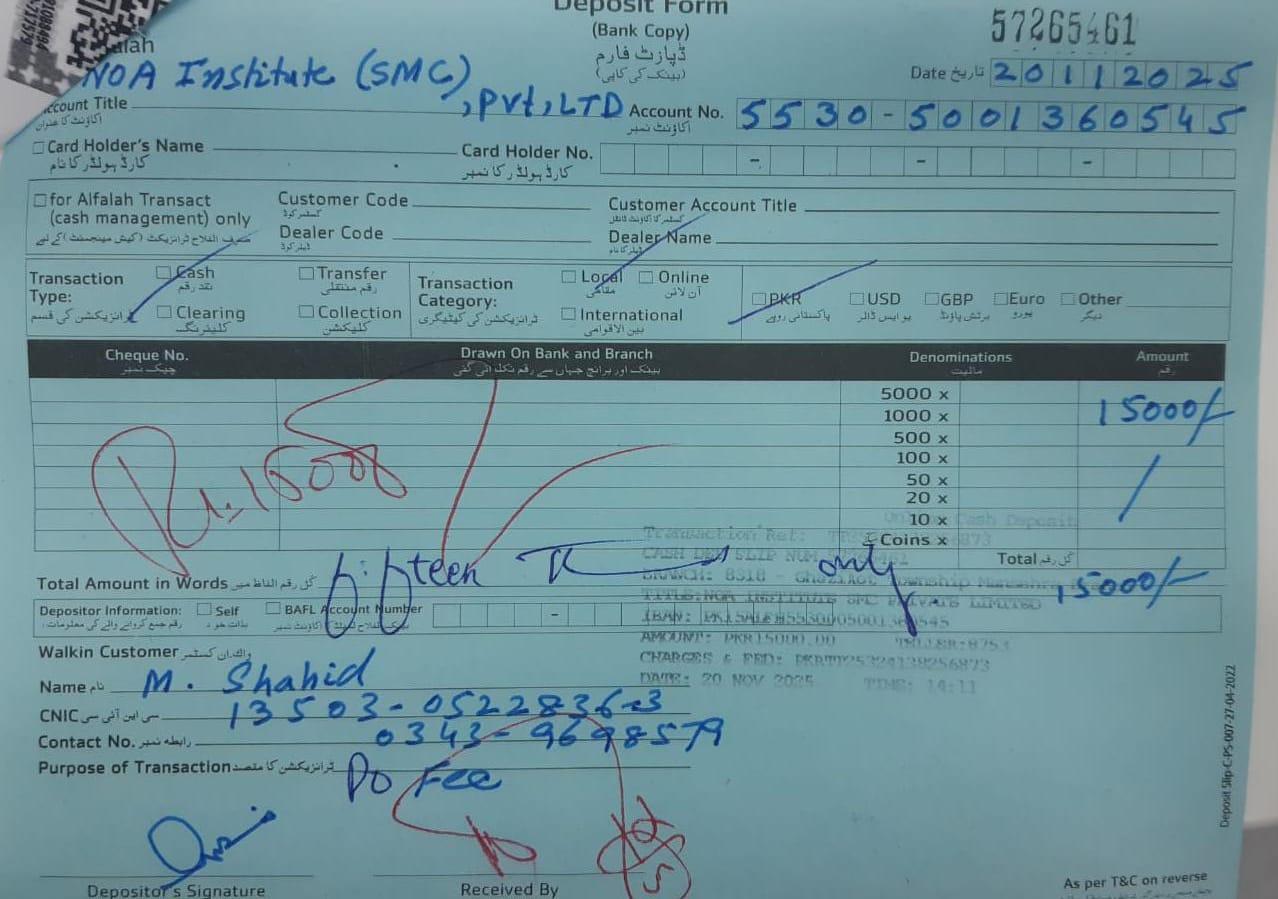 Deposit Form
(Bank Copy)
ڈپازٹ فارم
(بینک کی کاپی)
57265461
Date تاریخ 20112025
alfalah
NOA Institute (SMC), Pvt, LTD
Account Title
اکاؤنٹ کا عنوان
Account No. 5530-5001360545
اکاؤنٹ نمبر
Card Holder's Name
کارڈ ہولڈر کا نام
Card Holder No.
کارڈ ہولڈر کا نمبر
for Alfalah Transact
(cash management) only
Customer Code
کسٹمر کوڈ
Customer Account Title
Dealer Code
ڈیلر کوڈ
Dealer Name
ڈیلر کا نام
Transaction Type:
ٹرانزیکشن کی قسم
Cash
نقد رقم
Transfer
رقم منتقلی
Clearing
کلیئرنگ
Collection
کلیکشن
Transaction Category:
ٹرانزیکشن کی کیٹیگری
Local
مقامی
Online
آن لائن
International
بین الاقوامی
PKR
پاکستانی روپے
USD
یو ایس ڈالر
GBP
برٹش پاؤنڈ
Euro
یورو
Other
دیگر
Cheque No.
چیک نمبر
Drawn On Bank and Branch
بینک اور برانچ جہاں سے رقم نکلوائی گئی
Denominations
مالیت
Amount
رقم
5000 x
1000 x 15000/-
500 x
100 x
50 x
20 x
10 x
Coins x
Rs. 15000
Total کل رقم 15000/-
Total Amount in Words کل رقم الفاظ میں fifteen only
Online Cash Deposit
Transaction Ref:
CASH DEP SLIP NUM
BRANCH: 8318 - Ghazikot Township Mansehra
TITLE:NOA INSTITUTE SMC PRIVATE LIMITED
IBAN:
AMOUNT: PKR15000.00 TELLER:8753
CHARGES & FED: PKR
DATE: 20 NOV 2025 TIME: 14:11
Depositor Information:
رقم جمع کروانے والے کی معلومات
Self
بذات خود
BAFL Account Number
Walkin Customer واک ان کسٹمر
Name نام M. Shahid
CNIC سی این آئی سی 13503-0522836-3
Contact No. رابطہ نمبر 0343-9698579
Purpose of Transaction ٹرانزیکشن کا مقصد Do Fee
Depositor's Signature
Received By
As per T&C on reverse
Deposit Slip-C-PS-007-27-04-2022